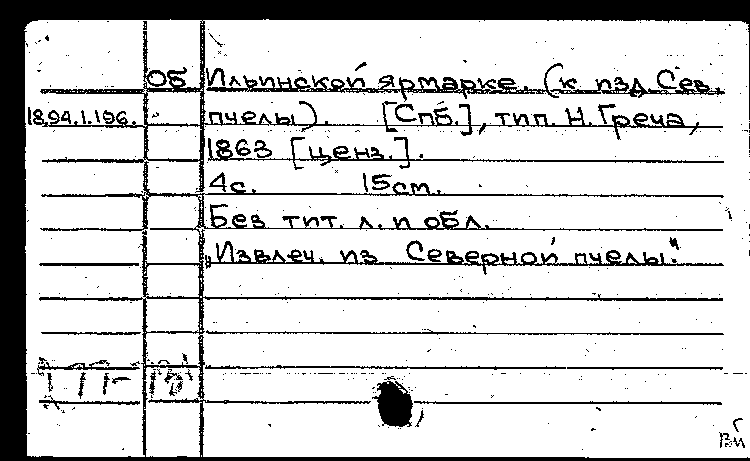 Об Ильинской ярмарке. (к изд. Сев.
18.94.1.196. пчелы). [Спб.], тип. Н. Греча,
1863 [ценз.].
4с. 15см.
Без тит. л. и обл.
„Извлеч. из Северной пчелы."